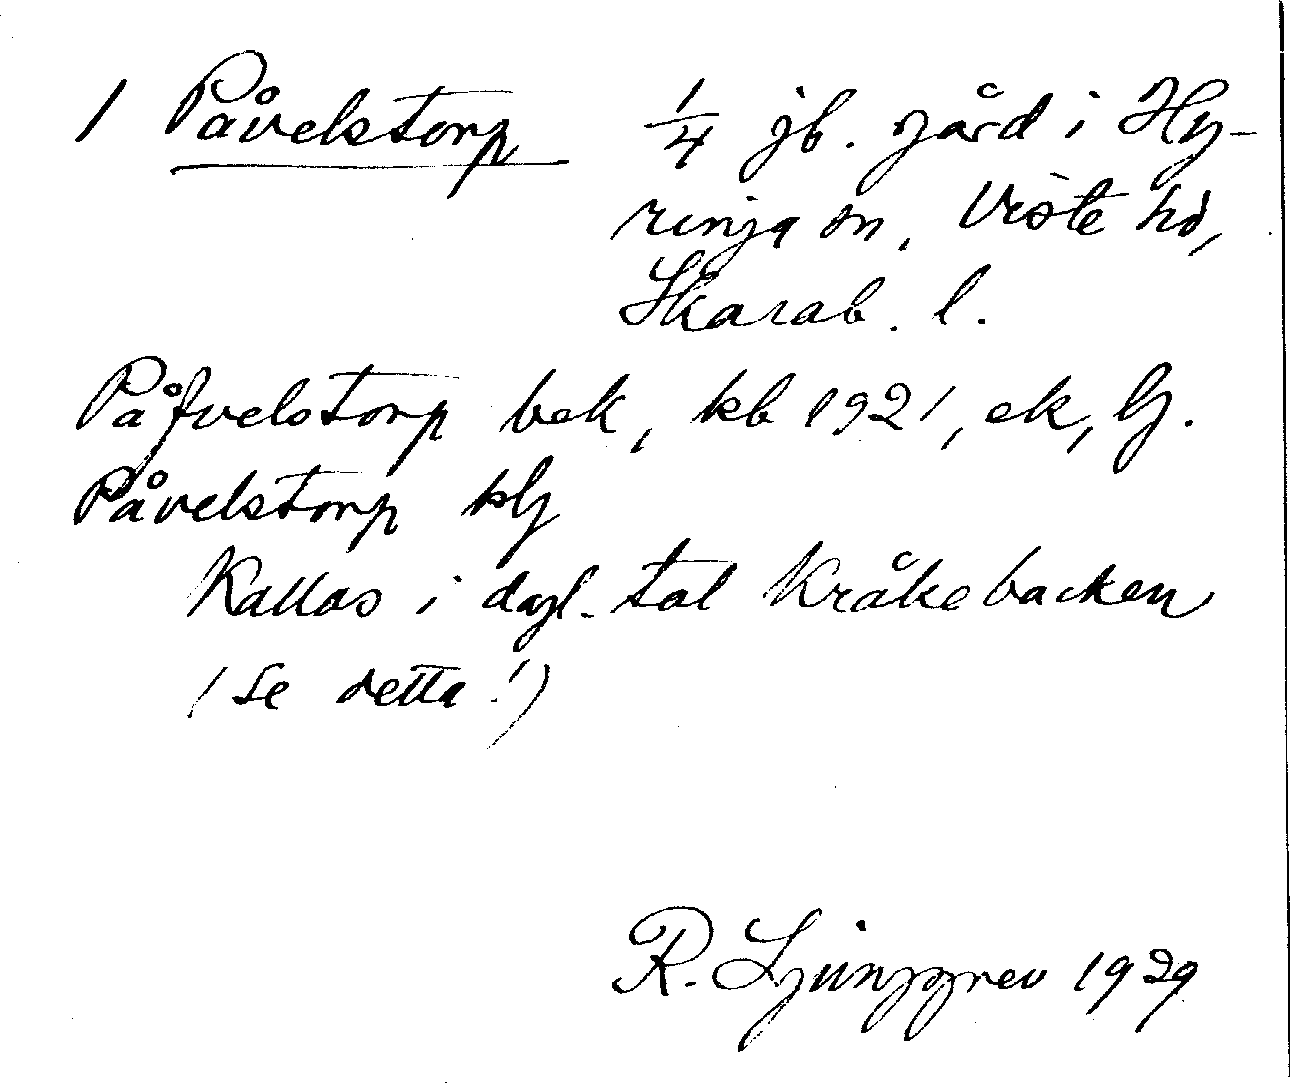 1 Påvelstorp 1/4 jb. gård i Hy-
ringa sn, Viste hd,
Skarab. l.
Påfvelstorp bek, kb 1921, ek, lj.
Påvelstorp klj
Kallas i dagl. tal Kråkebacken
(Se detta!)
R. Ljunggren 1929